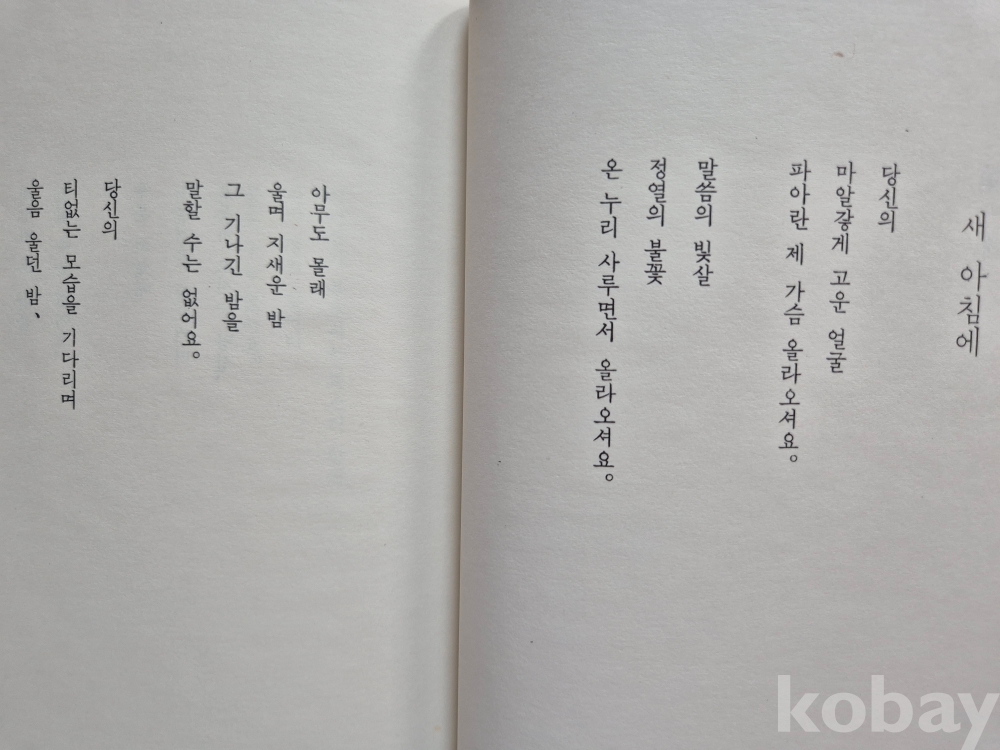 새 아침에
당신의
마알갛게 고운 얼굴
파아란 제 가슴 올라오셔요。
말씀의 빛살
정열의 불꽃
온 누리 사루면서 올라오셔요。
아무도 몰래
울며 지새운 밤
그 기나긴 밤을
말할 수는 없어요。
당신의
티없는 모습을 기다리며
울음 울던 밤、
kobay